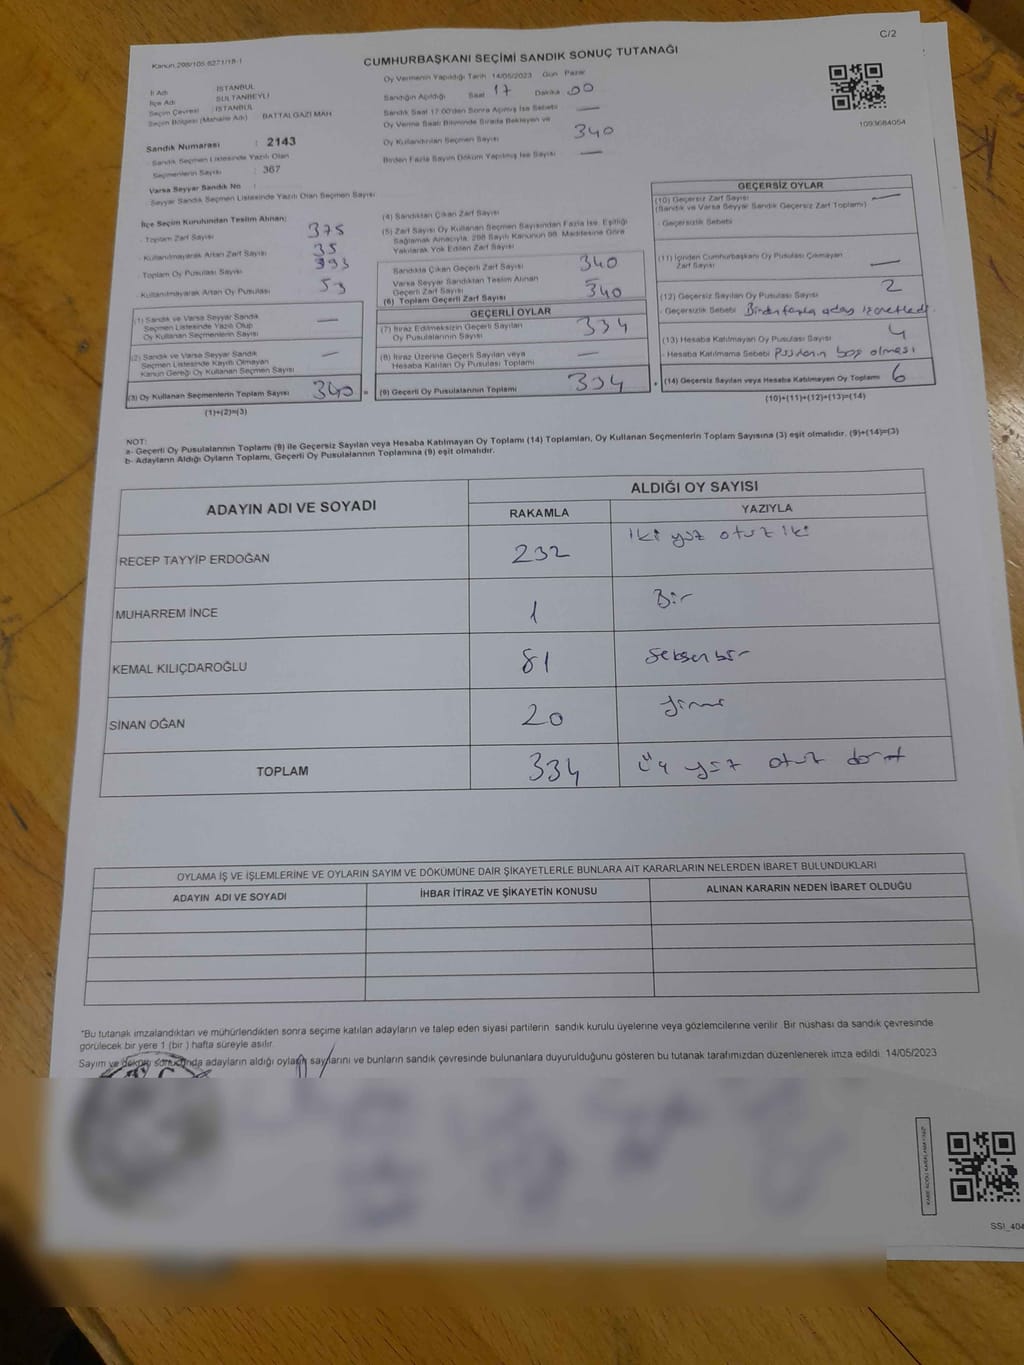 C/2
Kanun 298/105.6271/18-1
CUMHURBAŞKANI SEÇİMİ SANDIK SONUÇ TUTANAĞI
İl Adı İSTANBUL
İlçe Adı SULTANBEYLİ
Seçim Çevresi İSTANBUL
Seçim Bölgesi (Mahalle Adı) BATTALGAZİ MAH.
Sandık Numarası : 2143
Sandık Seçmen Listesinde Yazılı Olan
Seçmenlerin Sayısı : 367
Varsa Seyyar Sandık No :
Seyyar Sandık Seçmen Listesinde Yazılı Olan Seçmen Sayısı
Oy Vermenin Yapıldığı Tarih 14/05/2023 Gün Pazar
Sandığın Açıldığı Saat 17 Dakika 00
Sandık Saat 17:00'den Sonra Açılmış İse Sebebi —
Oy Verme Saati Bitiminde Sırada Bekleyen ve
Oy Kullandırılan Seçmen Sayısı 340
Birden Fazla Sayım Döküm Yapılmış İse Sayısı —
1093684054
İlçe Seçim Kurulundan Teslim Alınan;
- Toplam Zarf Sayısı 375
- Kullanılmayarak Artan Zarf Sayısı 35
- Toplam Oy Pusulası Sayısı 393
- Kullanılmayarak Artan Oy Pusulası 53
(1) Sandık ve Varsa Seyyar Sandık
Seçmen Listesinde Yazılı Olup
Oy Kullanan Seçmenlerin Sayısı —
(2) Sandık ve Varsa Seyyar Sandık
Seçmen Listesinde Kayıtlı Olmayan
Kanun Gereği Oy Kullanan Seçmen Sayısı —
(3) Oy Kullanan Seçmenlerin Toplam Sayısı 340 =
(1)+(2)=(3)
(4) Sandıktan Çıkan Zarf Sayısı
(5) Zarf Sayısı Oy Kullanan Seçmen Sayısından Fazla İse, Eşitliği
Sağlamak Amacıyla, 298 Sayılı Kanunun 98. Maddesine Göre
Yakılarak Yok Edilen Zarf Sayısı
Sandıkta Çıkan Geçerli Zarf Sayısı 340
Varsa Seyyar Sandıktan Teslim Alınan
Geçerli Zarf Sayısı
(6) Toplam Geçerli Zarf Sayısı 340
GEÇERLİ OYLAR
(7) İtiraz Edilmeksizin Geçerli Sayılan
Oy Pusulalarının Sayısı 334
(8) İtiraz Üzerine Geçerli Sayılan veya
Hesaba Katılan Oy Pusulalarının Toplamı —
(9) Geçerli Oy Pusulalarının Toplamı 334 +
GEÇERSİZ OYLAR
(10) Geçersiz Zarf Sayısı —
(Sandık ve Varsa Seyyar Sandık Geçersiz Zarf Toplamı)
- Geçersizlik Sebebi
(11) İçinden Cumhurbaşkanı Oy Pusulası Çıkmayan
Zarf Sayısı —
(12) Geçersiz Sayılan Oy Pusulası Sayısı 2
- Geçersizlik Sebebi Birden fazla aday işaretledi
(13) Hesaba Katılmayan Oy Pusulası Sayısı 4
- Hesaba Katılmama Sebebi Pusulanın boş olması
(14) Geçersiz Sayılan veya Hesaba Katılmayan Oy Toplamı 6
(10)+(11)+(12)+(13)=(14)
NOT:
a- Geçerli Oy Pusulalarının Toplamı (9) ile Geçersiz Sayılan veya Hesaba Katılmayan Oy Toplamı (14) Toplamları, Oy Kullanan Seçmenlerin Toplam Sayısına (3) eşit olmalıdır. (9)+(14)=(3)
b- Adayların Aldığı Oyların Toplamı, Geçerli Oy Pusulalarının Toplamına (9) eşit olmalıdır.
ADAYIN ADI VE SOYADI
ALDIĞI OY SAYISI
RAKAMLA YAZIYLA
RECEP TAYYİP ERDOĞAN 232 iki yüz otuz iki
MUHARREM İNCE 1 Bir
KEMAL KILIÇDAROĞLU 81 Seksen bir
SİNAN OĞAN 20 yirmi
TOPLAM 334 üç yüz otuz dört
OYLAMA İŞ VE İŞLEMLERİNE VE OYLARIN SAYIM VE DÖKÜMÜNE DAİR ŞİKAYETLERLE BUNLARA AİT KARARLARIN NELERDEN İBARET BULUNDUKLARI
ADAYIN ADI VE SOYADI İHBAR İTİRAZ VE ŞİKAYETİN KONUSU ALINAN KARARIN NEDEN İBARET OLDUĞU
*Bu tutanak imzalandıktan ve mühürlendikten sonra seçime katılan adayların ve talep eden siyasi partilerin sandık kurulu üyelerine veya gözlemcilerine verilir. Bir nüshası da sandık çevresinde
görülecek bir yere 1 (bir) hafta süreyle asılır.
Sayım ve döküm sonucunda adayların aldığı oyların sayılarını ve bunların sandık çevresinde bulunanlara duyurulduğunu gösteren bu tutanak tarafımızdan düzenlenerek imza edildi. 14/05/2023
SSI_404